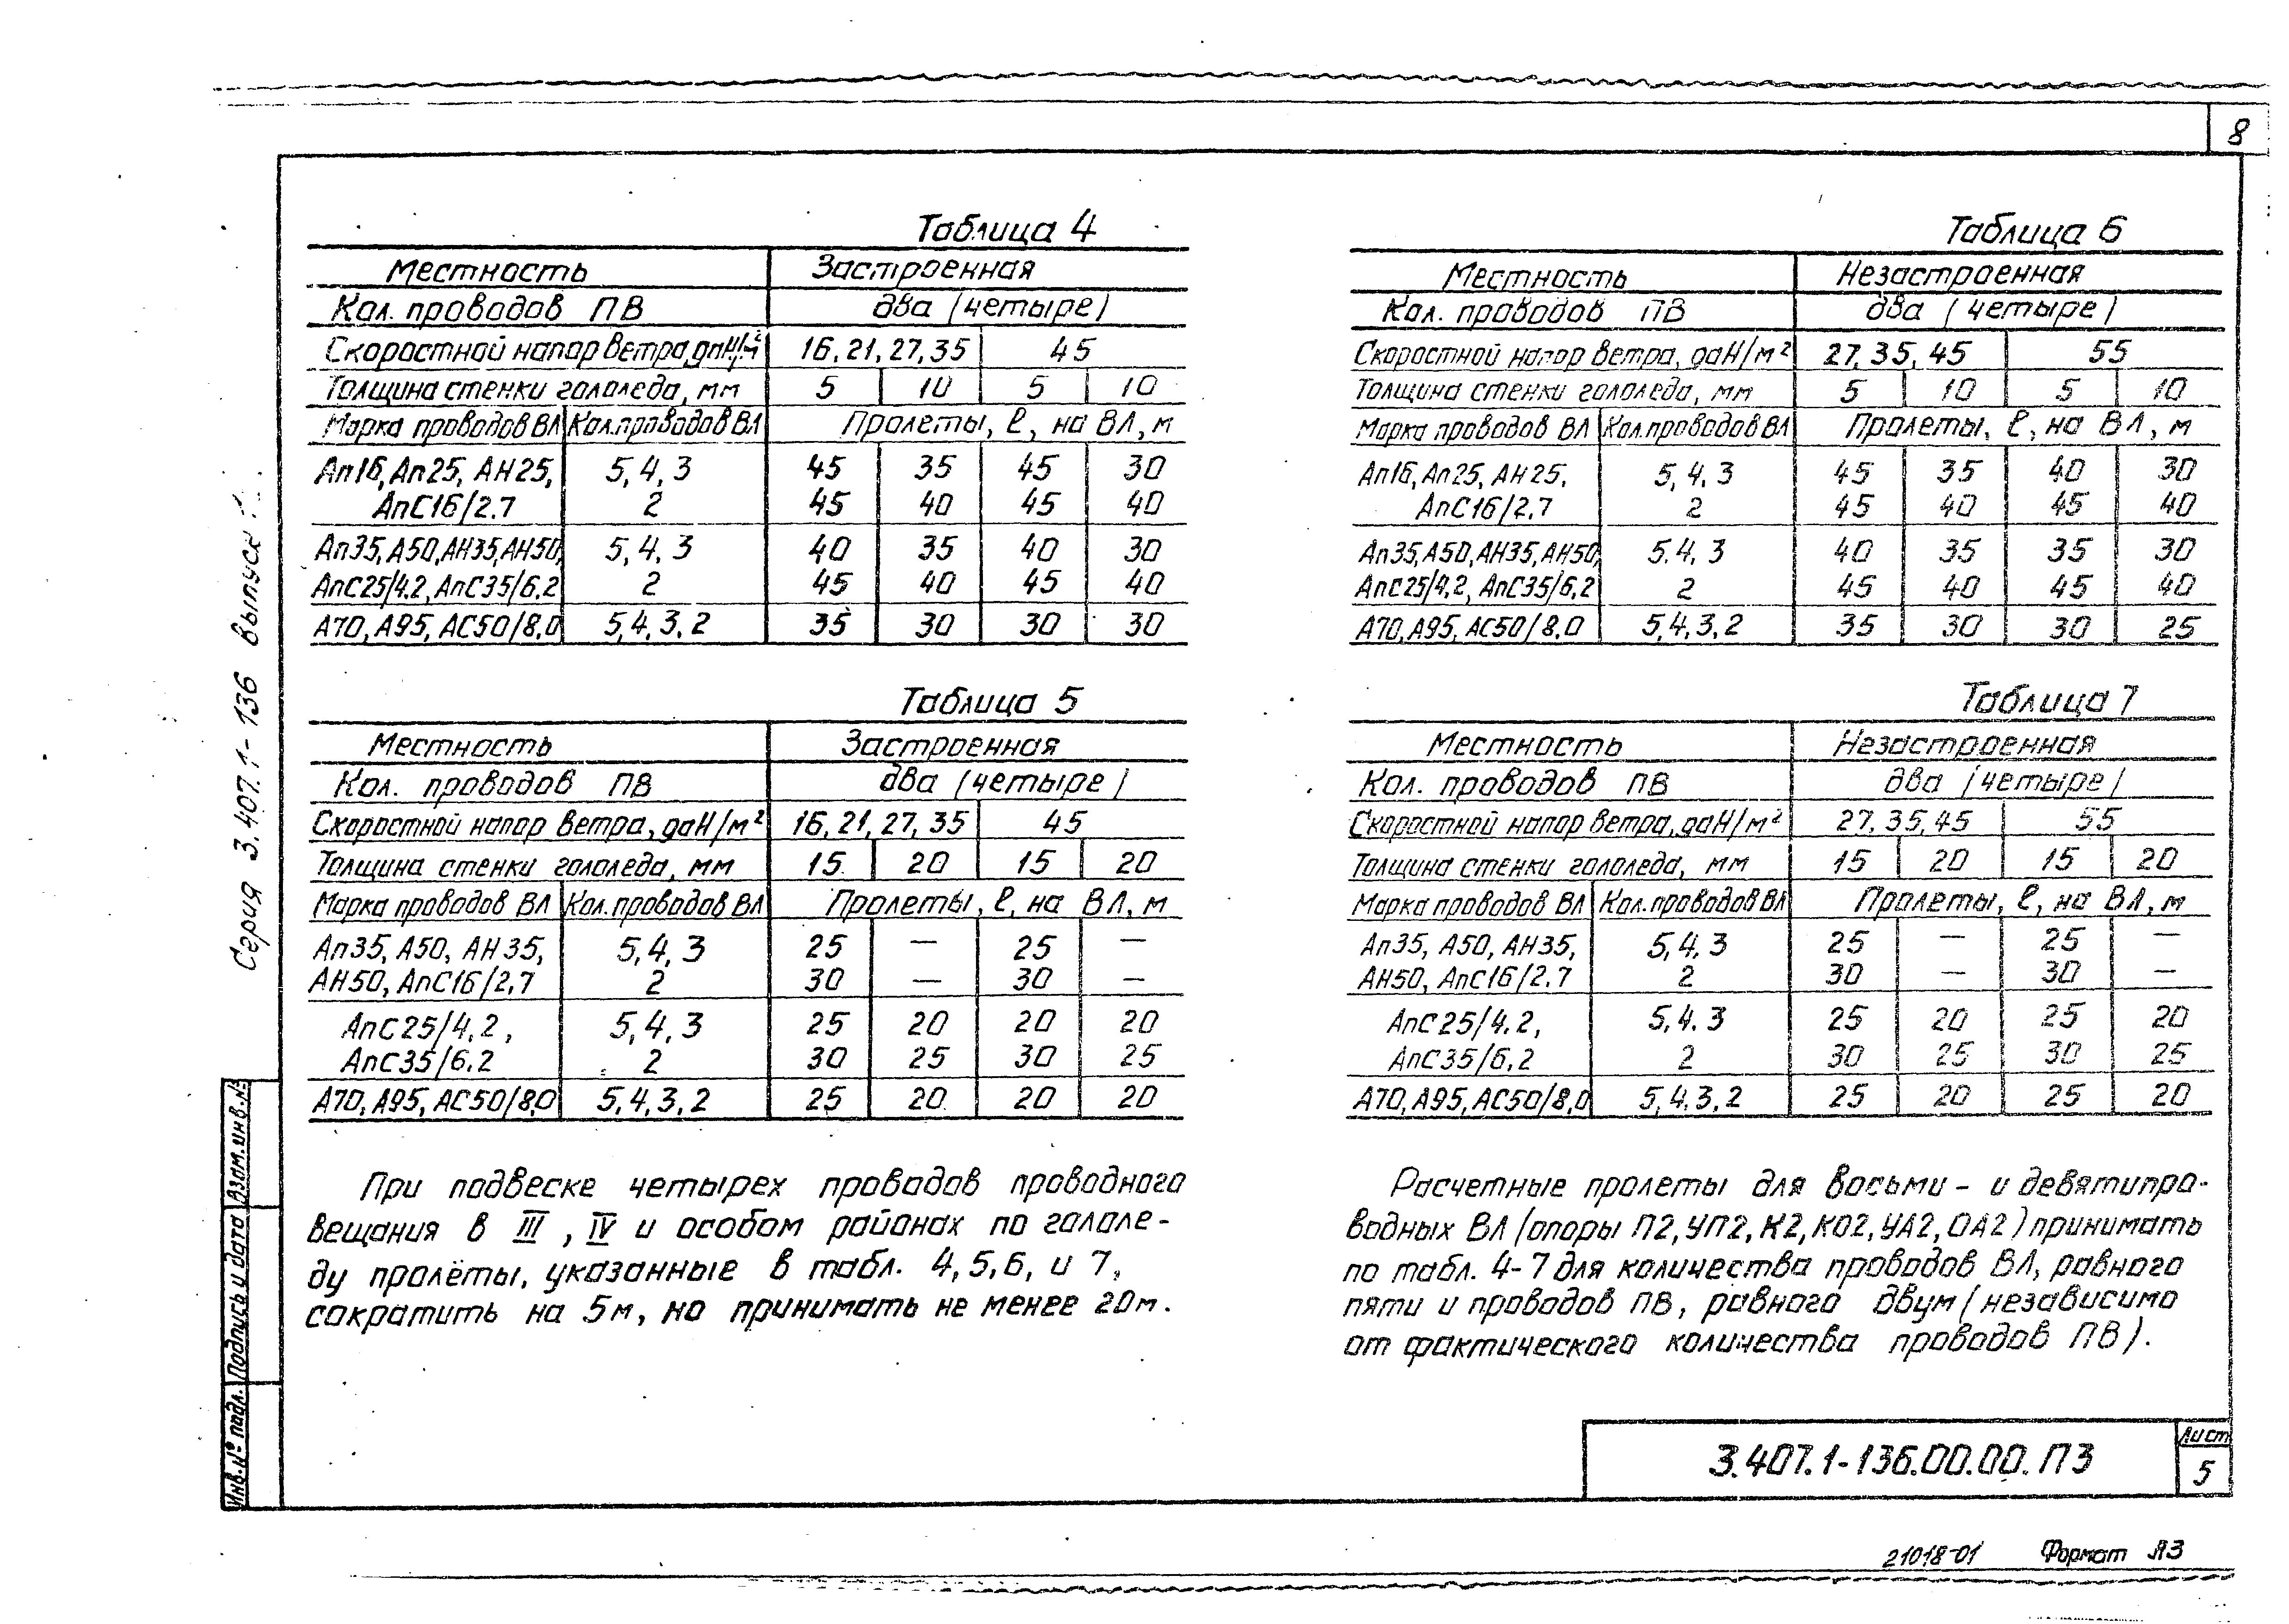 8
Таблица 4
Местность Застроенная
Кол. проводов ПВ два (четыре)
Скоростной напор ветра, даН/м² 16, 21, 27, 35 45
Толщина стенки гололеда, мм 5 10 5 10
Марка проводов ВЛ Кол. проводов ВЛ Пролеты, ℓ, на ВЛ, м
Ап16, Ап25, АН25, 5, 4, 3 45 35 45 30
АпС16/2.7 2 45 40 45 40
Ап35, А50, АН35, АН50, 5, 4, 3 40 35 40 30
АпС25/4.2, АпС35/6.2 2 45 40 45 40
А70, А95, АС50/8,0 5,4, 3, 2 35 30 30 30
Таблица 5
Местность Застроенная
Кол. проводов ПВ два (четыре)
Скоростной напор ветра, даН/м² 16, 21, 27, 35 45
Толщина стенки гололеда, мм 15 20 15 20
Марка проводов ВЛ Кол. проводов ВЛ Пролеты, ℓ, на ВЛ, м
Ап35, А50, АН35, 5, 4, 3 25 — 25 —
АН50, АпС16/2,7 2 30 — 30 —
АпС25/4,2, 5, 4, 3 25 20 20 20
АпС35/6.2 2 30 25 30 25
А70, А95, АС50/8,0 5, 4, 3, 2 25 20 20 20
При подвеске четырех проводов проводного
вещания в III, IV и особом районах по гололе-
ду пролёты, указанные в табл. 4, 5, 6, и 7,
сократить на 5м, но принимать не менее 20м.
Таблица 6
Местность Незастроенная
Кол. проводов ПВ два (четыре)
Скоростной напор ветра, даН/м² 27, 35, 45 55
Толщина стенки гололеда, мм 5 10 5 10
Марка проводов ВЛ Кол. проводов ВЛ Пролеты, ℓ, на ВЛ, м
Ап16, Ап25, АН25, 5, 4, 3 45 35 40 30
АпС16/2,7 2 45 40 45 40
Ап35, А50, АН35, АН50, 5, 4, 3 40 35 35 30
АпС25/4,2, АпС35/6,2 2 45 40 45 40
А70, А95, АС50/8,0 5, 4, 3, 2 35 30 30 25
Таблица 7
Местность Незастроенная
Кол. проводов ПВ два (четыре)
Скоростной напор ветра, даН/м² 27, 35, 45 55
Толщина стенки гололеда, мм 15 20 15 20
Марка проводов ВЛ Кол. проводов ВЛ Пролеты, ℓ, на ВЛ, м
Ап35, А50, АН35, 5, 4, 3 25 — 25 —
АН50, АпС16/2.7 2 30 — 30 —
АпС25/4.2, 5, 4. 3 25 20 25 20
АпС35/6,2 2 30 25 30 25
А70, А95, АС50/8,0 5, 4. 3, 2 25 20 25 20
Расчетные пролеты для восьми- и девятипро-
водных ВЛ (опоры П2, УП2, К2, КО2, УА2, ОА2) принимать
по табл. 4-7 для количества проводов ВЛ, равного
пяти и проводов ПВ, равного двум (независимо
от фактического количества проводов ПВ).
Серия 3.407.1-136 выпуск
Взам. инв. №
Подпись и дата
Инв. № подл.
3.407.1-136.00.00.ПЗ
Лист
5
21018-01 Формат А3